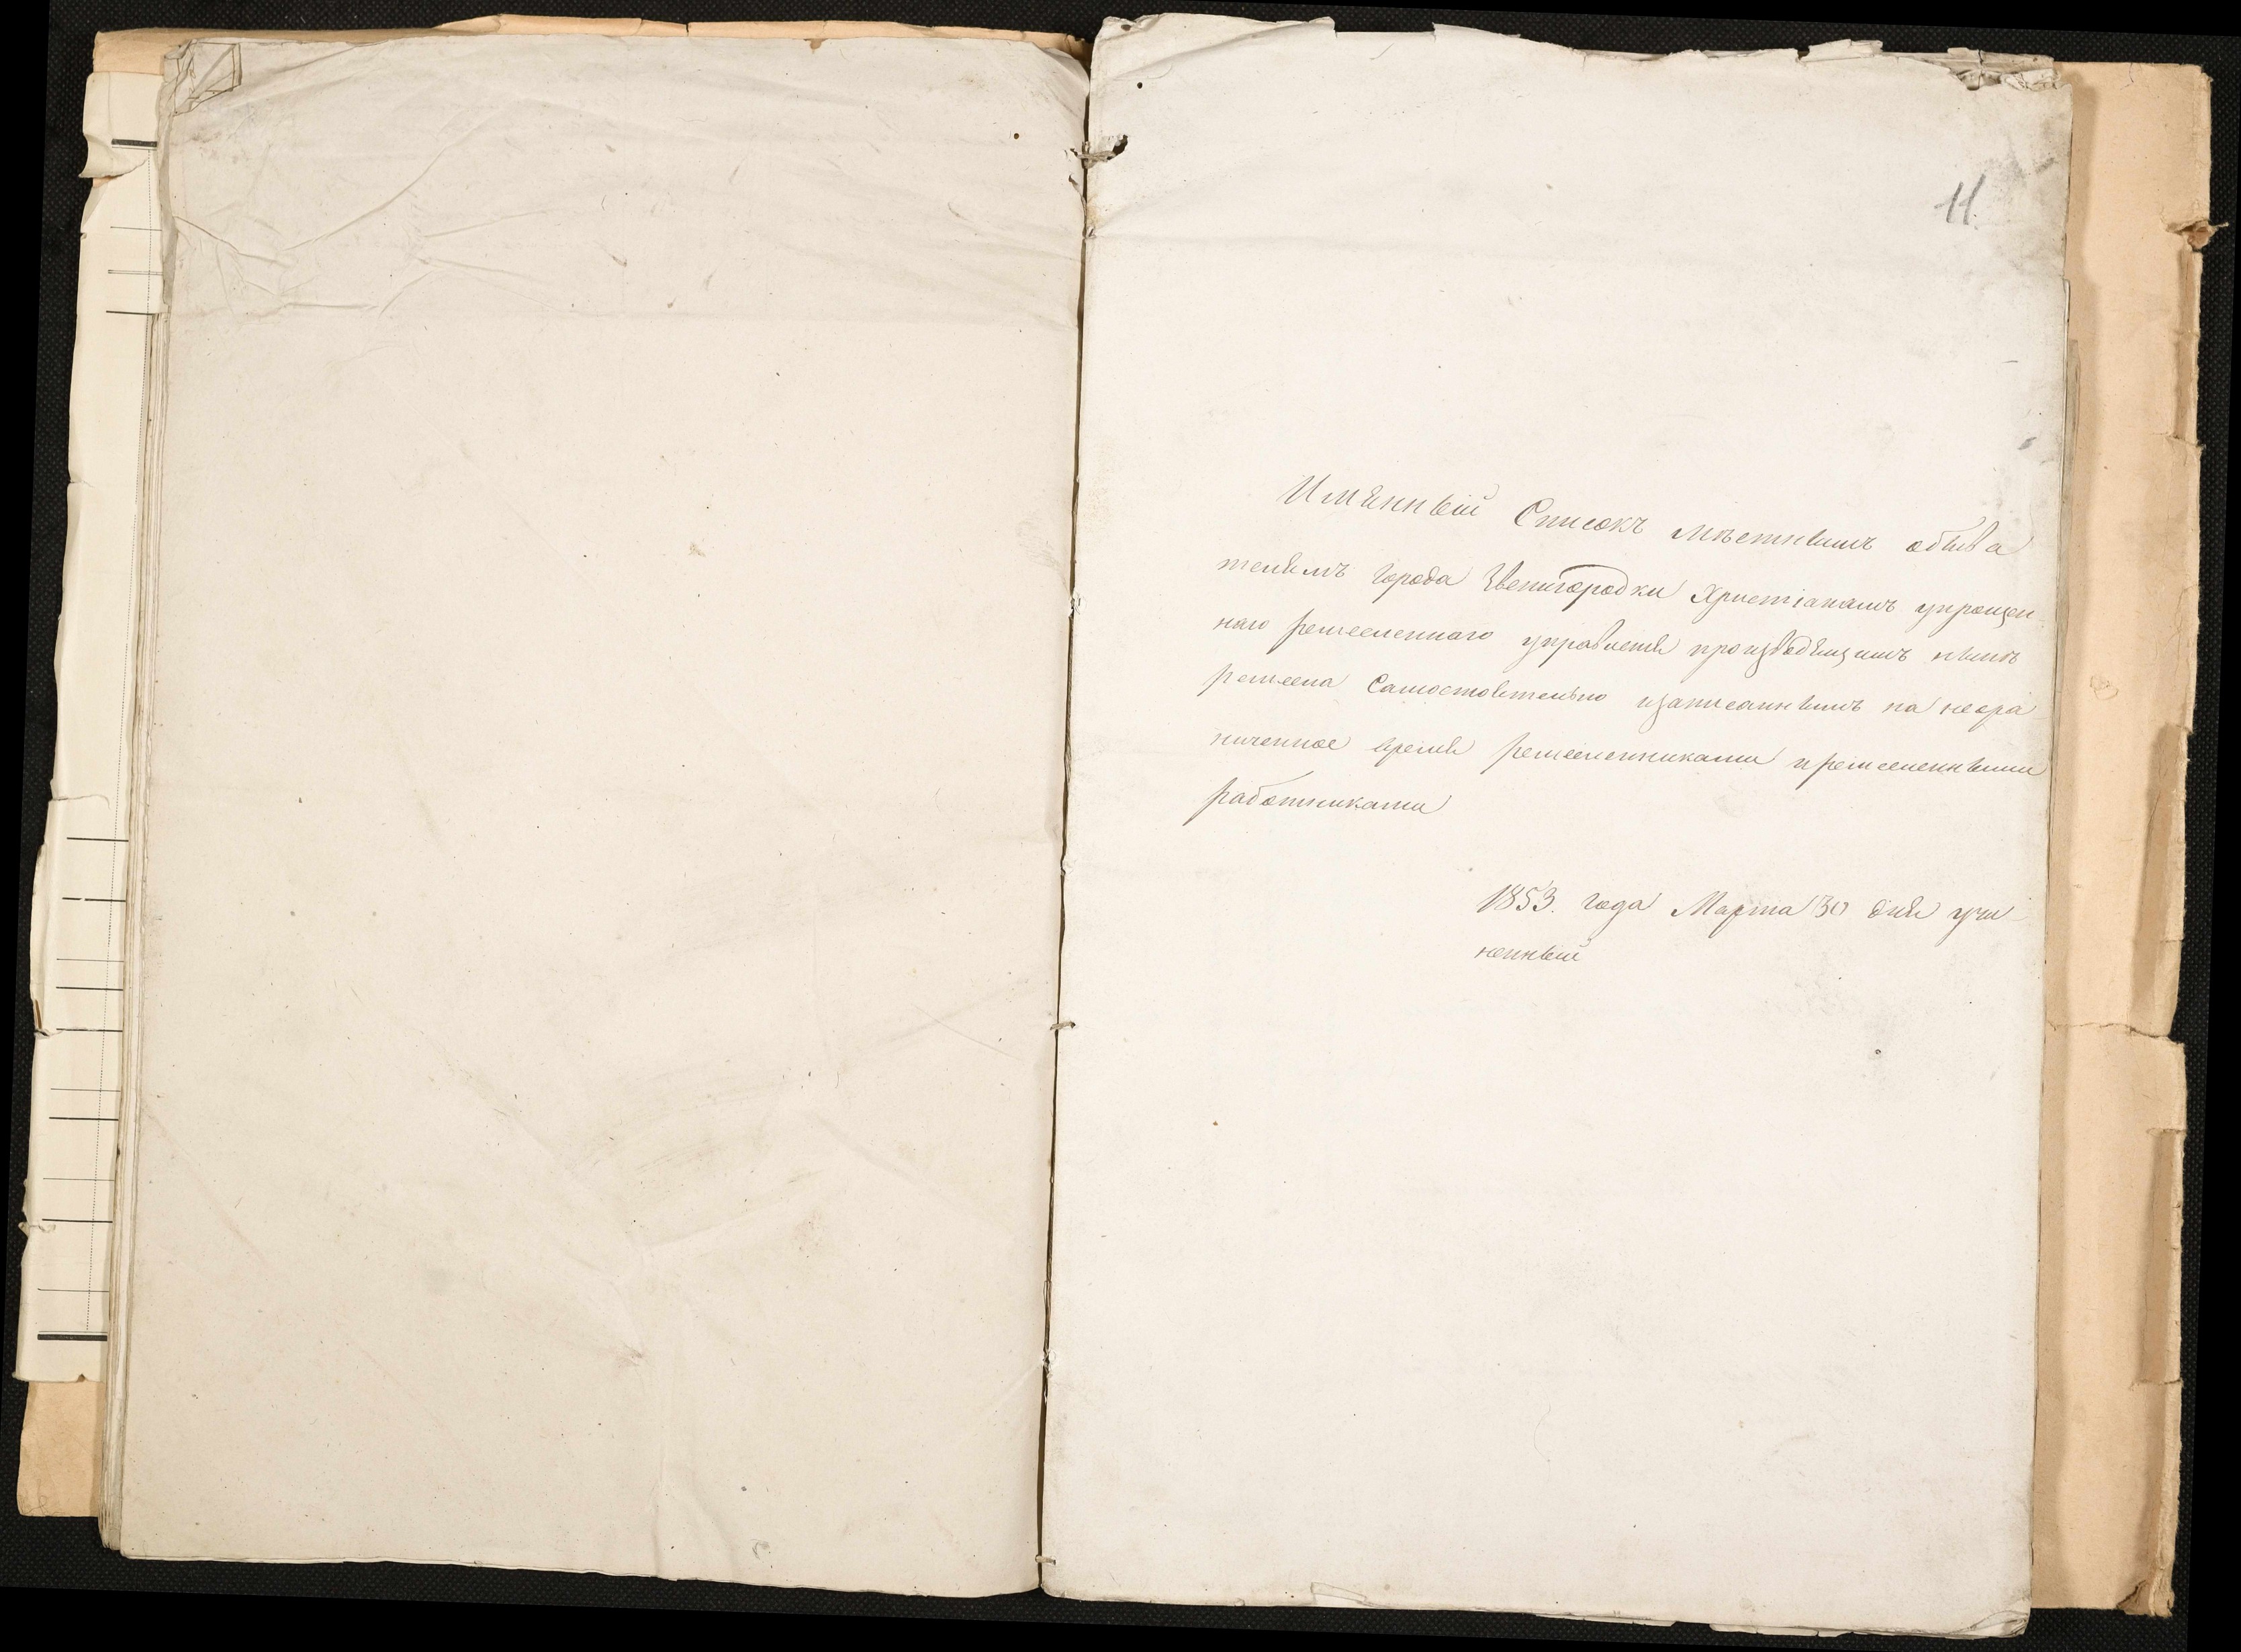 11.
Имянный Списокъ мѣстнымъ обыва
телямъ города Звенигородки Христіанамъ упрощен
наго ремесленнаго управленія производящимъ нынѣ
ремесла Самостоятельно изаписаннымъ на неогра
ниченное время ремесленниками иремесленными
работниками
1853. года Марта 30 дня учи
ненный